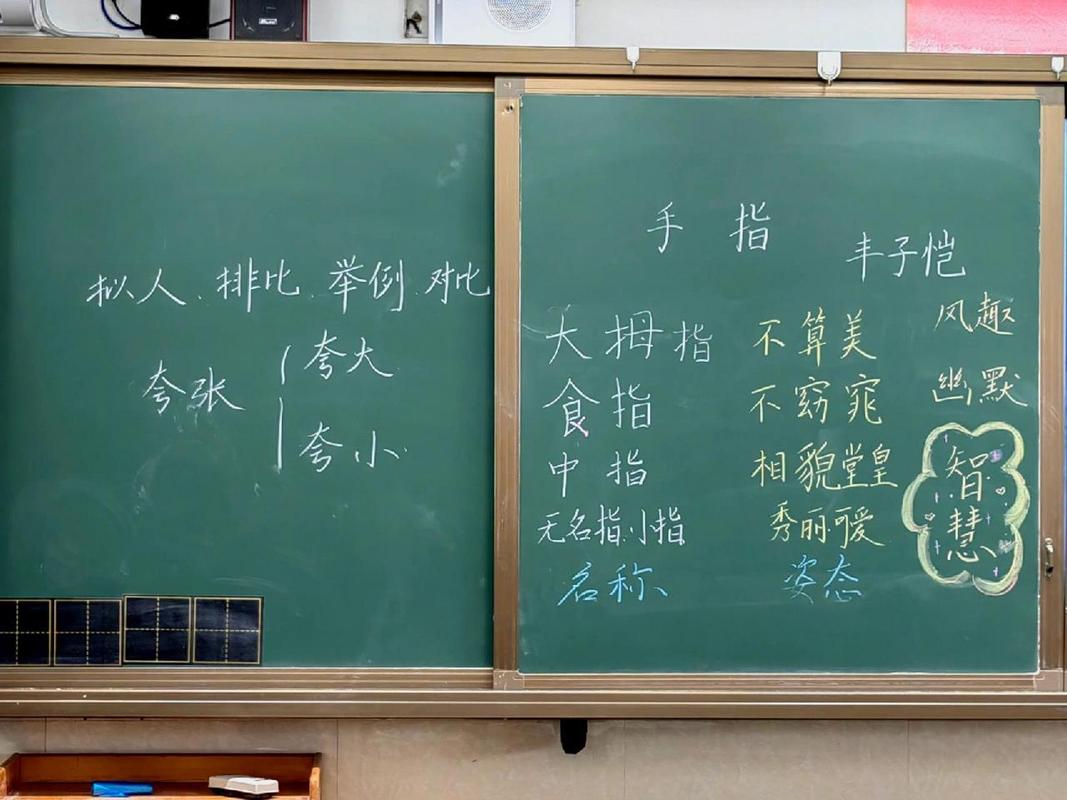 拟人、排比、举例、对比
夸张
夸大
夸小
手指
丰子恺
大拇指 不算美
食指 不窈窕
中指 相貌堂皇
无名指、小指 秀丽可爱
名称 姿态
风趣
幽默
智慧